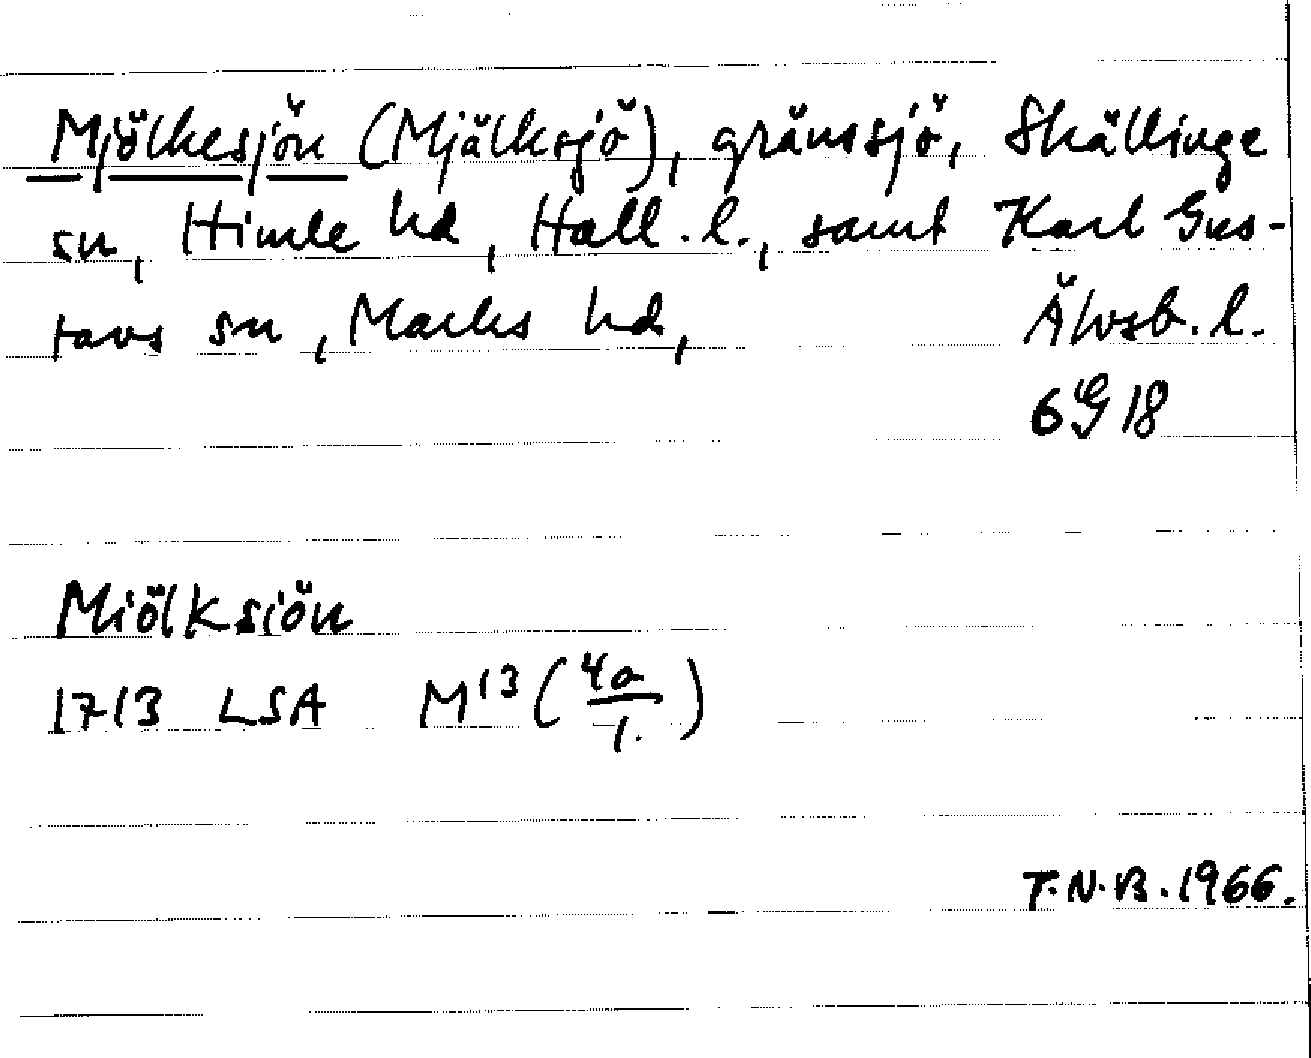 Mjölkesjön (Mjälksjö), gränssjö, Skällinge
sn, Himle hd, Hall. l., samt Karl Gus-
tavs sn, Marks hd, Älvsb. l.
6G 18
Miölksiön
1713 LSA M13 (4a/1.)
T.N.B. 1966.